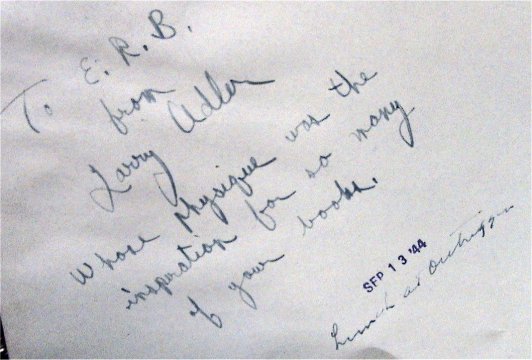 To E.R.B.
from
Larry Adler
Whose physique was the
inspiration for so many
of your books.
SEP 13 '44
Lunch at Outrigger